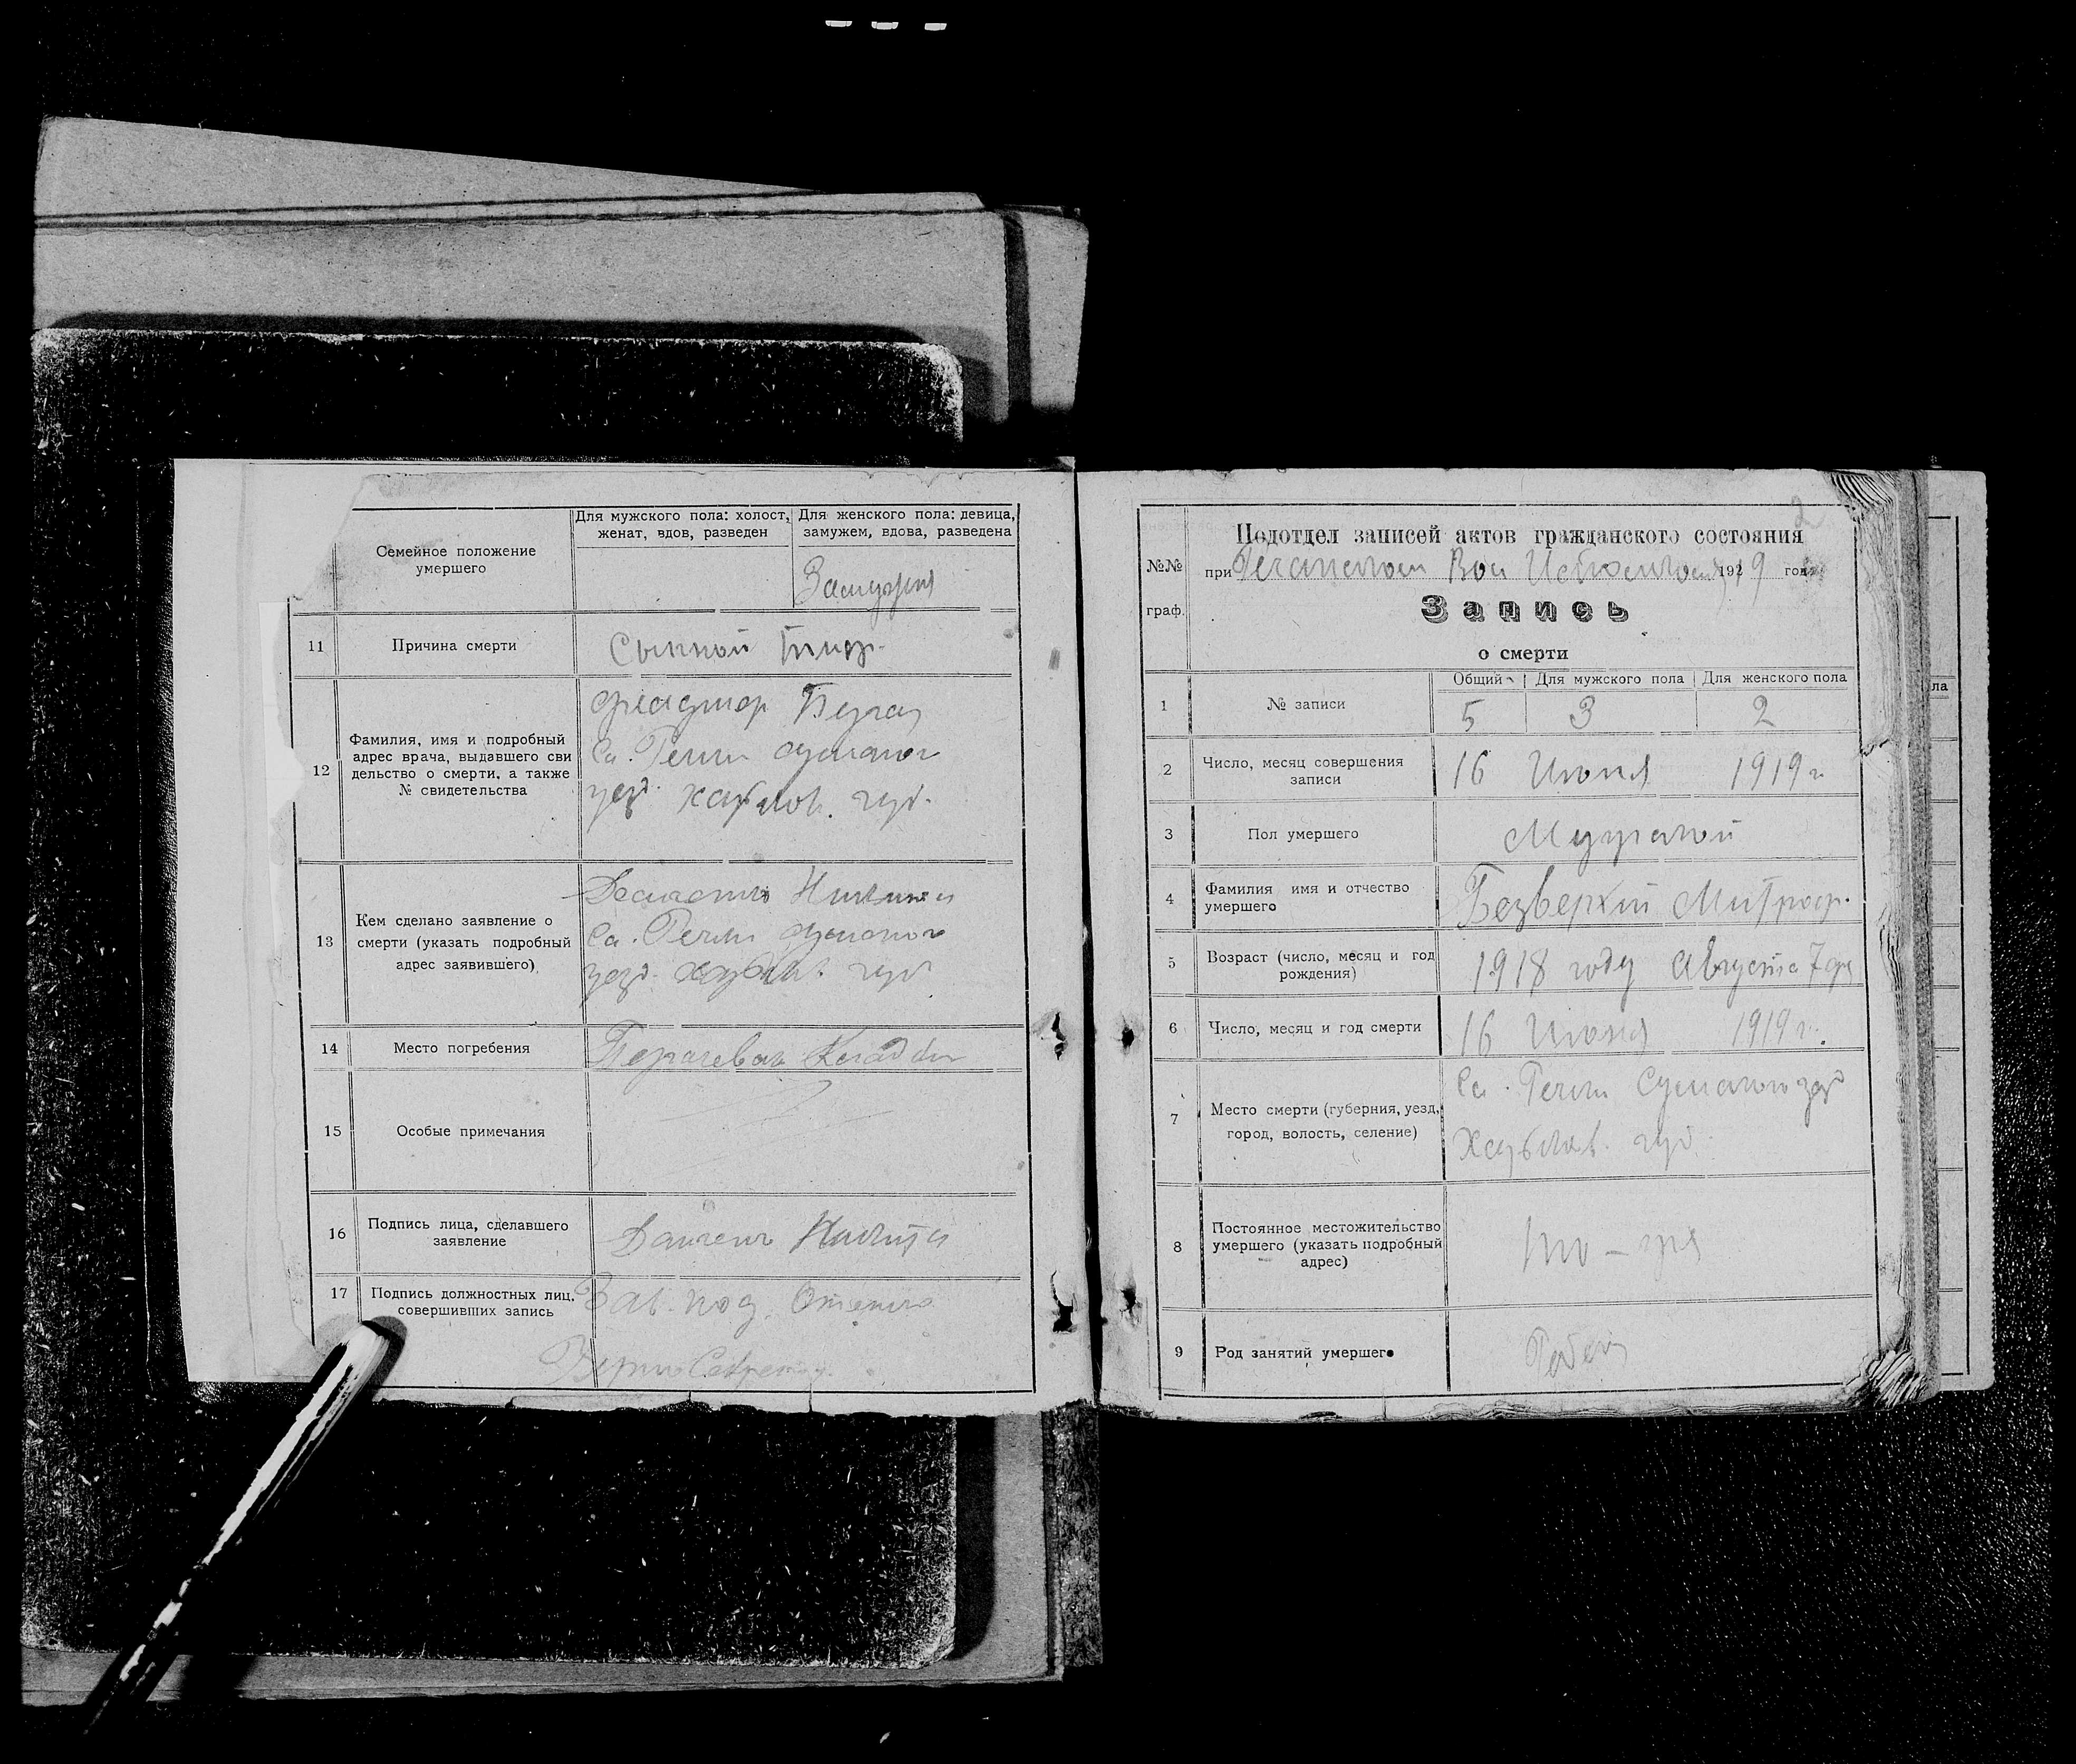 Семейное положение
умершего
Для мужского пола: холост,
женат, вдов, разведен
Для женского пола: девица,
замужем, вдова, разведена
Замужня
11
Причина смерти
Сыпной тиф.
12
Фамилия, имя и подробный
адрес врача, выдавшего сви
дельство о смерти, а также
№ свидетельства
Сл. Речки
уезд. Харьков. губ.
13
Кем сделано заявление о
смерти (указать подробный
адрес заявившего)
Никита
Сл. Речки
уезд. Харьк. губ
14
Место погребения
15
Особые примечания
16
Подпись лица, сделавшего
заявление
Никита
17
Подпись должностных лиц,
совершивших запись
Зав. под
2
№№
граф.
Подотдел записей актов гражданского состояния
при Речанском Вол Исполкому 1919 год
Запись
о смерти
1
№ записи
Общий
Для мужского пола
Для женского пола
5
3
2
2
Число, месяц совершения
записи
16 Июня 1919 г
3
Пол умершего
Мужской
4
Фамилия имя и отчество
умершего
Безверхий Митроф.
5
Возраст (число, месяц и год
рождения)
1918 году Августа 7 дня
6
Число, месяц и год смерти
16 Июня 1919 г.
7
Место смерти (губерния, уезд,
город, волость, селение)
Сл. Речки Сумского уезд
Харьков. губ.
8
Постоянное местожительство
умершего (указать подробный
адрес)
9
Род занятий умершего
ла